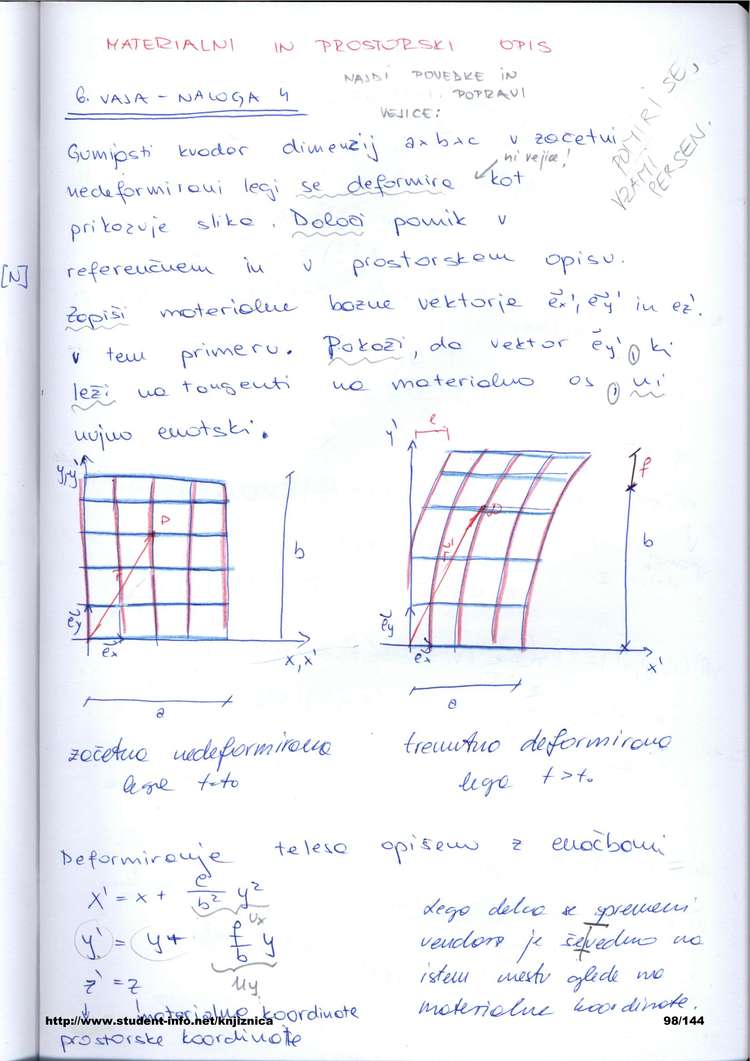 MATERIALNI IN PROSTORSKI OPIS
6. VAJA - NALOGA 4
NAJDI POVEDKE IN
POPRAVI
VEJICE:
POMIRI SE,
VZAMI
PERSEN.
Gumijasti kvadar dimenzij a×b×c v začetni
ni vejice!
nedeformirani legi se deformira kot
prikazuje slika. Določi pomik v
referenčnem in v prostorskem opisu.
[N]
Zapiši materialne bazne vektorje ex', ey' in ez'.
v tem primeru. Pokaži, da vektor ey', ki
leži na tangenti na materialno os, ni
nujno enotski.
y,y'
P
r
b
ey
ex
x,x'
a
y'
e
f
P
r'
b
ey
ex
x'
a
začetna nedeformirana
lega t=t0
trenutno deformirana
lega t>t0
Deformiranje telesa opišemo z enačbami
x' = x + e/b² y²
ux
y' = y + f/b y
uy
z' = z
materialne koordinate
prostorske koordinate
Lega delca se spremeni
vendar je še vedno na
istem mestu glede na
materialne koordinate.
http://www.student-info.net/knjiznica
98/144